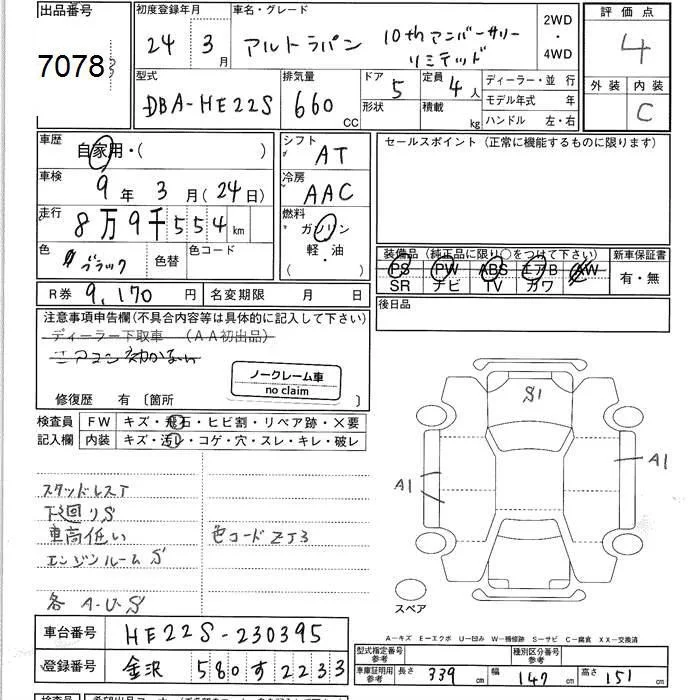 出品番号
7078
初度登録年月
24 3月
車名・グレード
アルトラパン 10thアニバーサリー
リミテッド
2WD
・
4WD
評価点
4
外装 内装
C
型式
DBA-HE22S
排気量
660 CC
ドア
5
形状
定員
4人
積載
kg
ディーラー・並 行
モデル年式 年
ハンドル 左・右
車歴
自家用・( )
車検
9年 3月(24日)
走行
8万9千554km
色
ブラック
色替
色コード
シフト
AT
冷房
AAC
燃料
ガソリン
軽・油
( )
セールスポイント(正常に機能するものに限ります)
装備品(純正品に限り○をつけて下さい)
PS PW ABS エアB AW
SR ナビ TV カワ
新車保証書
有・無
R券 9,170円
名変期限 月 日
後日品
注意事項申告欄(不具合内容等は具体的に記入して下さい)
ディーラー下取車 (AA初出品)
エアコン効かない
ノークレーム車
no claim
修復歴 有 〔箇所 〕
検査員
記入欄
FW キズ・飛石・ヒビ割・リペア跡・×要
内装 キズ・汚レ・コゲ・穴・スレ・キレ・破レ
スタッドレスT
下廻りS
車高低い
色コードZJ3
エンジンルームS
各 A・U・S
S1
A1
A1
スペア
A-キズ E-エクボ U-凹み W-補修跡 S-サビ C-腐食 XX-交換済
車台番号 HE22S-230395
登録番号 金沢 580 す 2233
型式指定番号
参考
種別区分番号
参考
車庫証明用
参考
長さ 339cm 幅 147cm 高さ 151cm
検査員